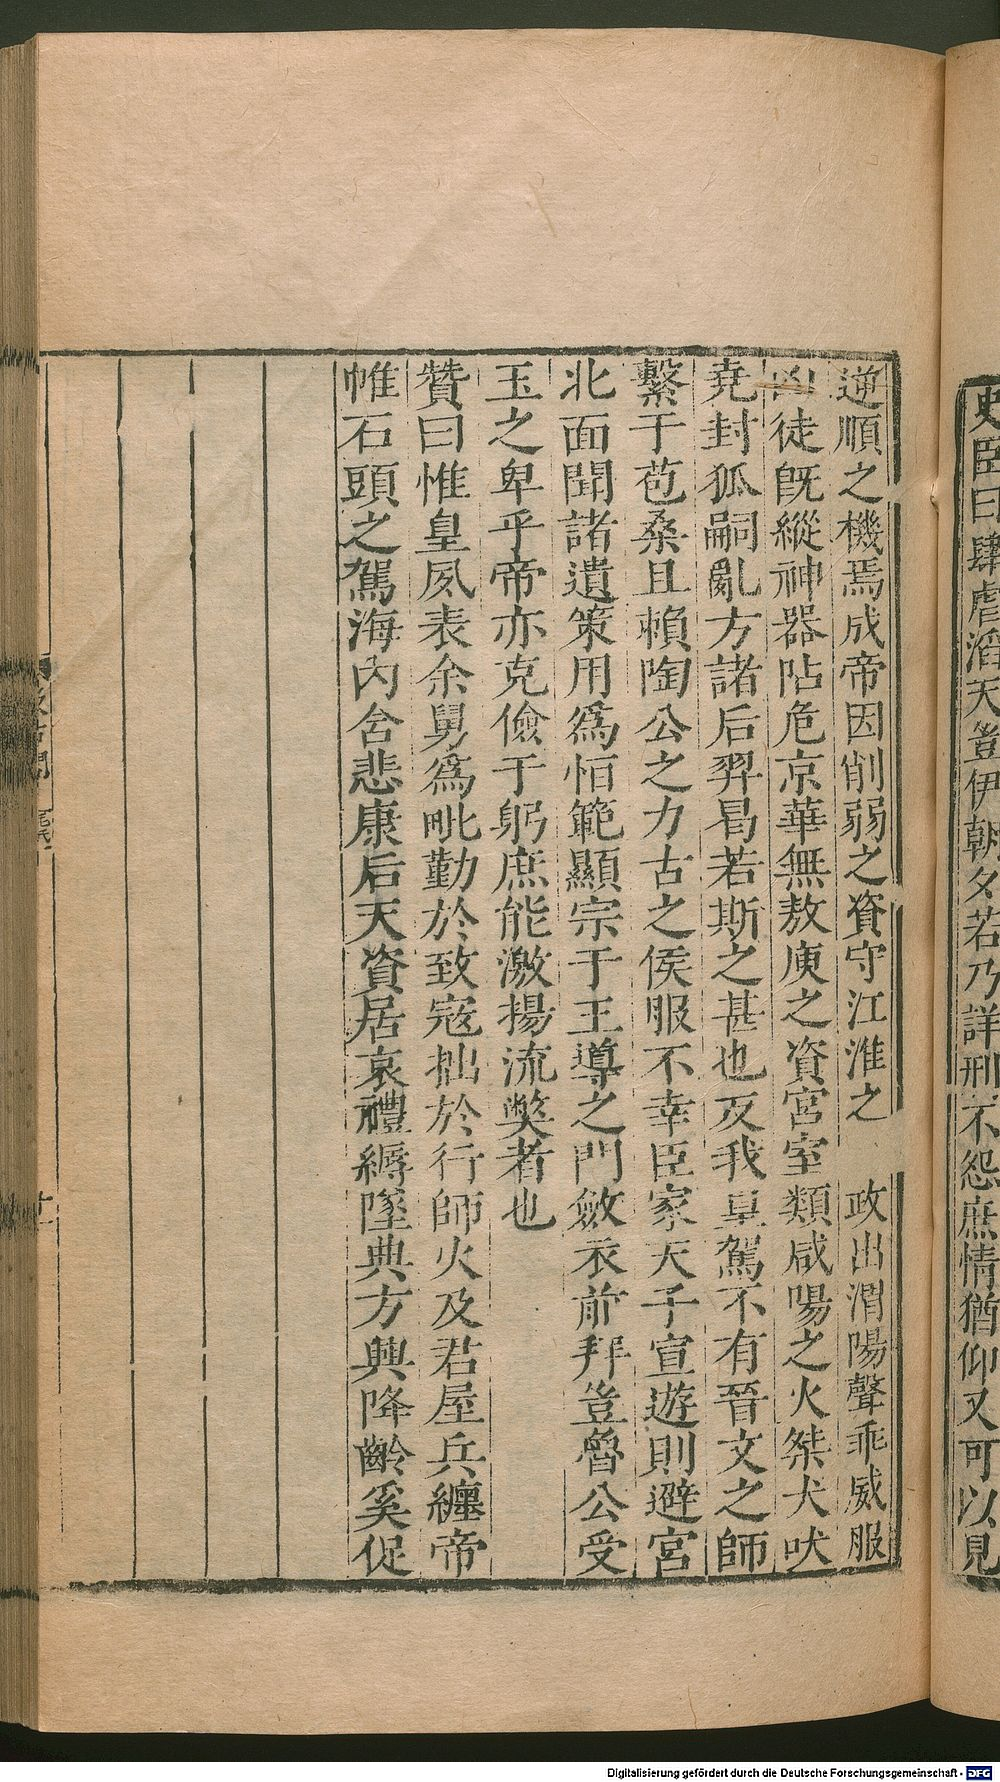 史臣曰肆虐滔天豈伊朝夕若乃詳刑不怨庶情猶仰又可以見
逆順之機焉成帝因削弱之資守江淮之 政出渭陽聲乖威服
凶徒旣縱神器阽危京華無敖庾之資宮室類咸陽之火桀犬吠
堯封狐嗣亂方諸后羿曷若斯之甚也反我皇駕不有晉文之師
繫于苞桑且賴陶公之力古之侯服不幸臣家天子宣遊則避宮
北面聞諸遺策用爲恒範顯宗于王導之門斂衣前拜豈魯公受
玉之卑乎帝亦克儉于躬庶能激揚流獘者也
贊曰惟皇夙表余舅爲毗勤於致寇拙於行師火及君屋兵纏帝
帷石頭之駕海內含悲康后天資居哀禮縟墜典方興降齡奚促
Digitalisierung gefördert durch die Deutsche Forschungsgemeinschaft - DFG